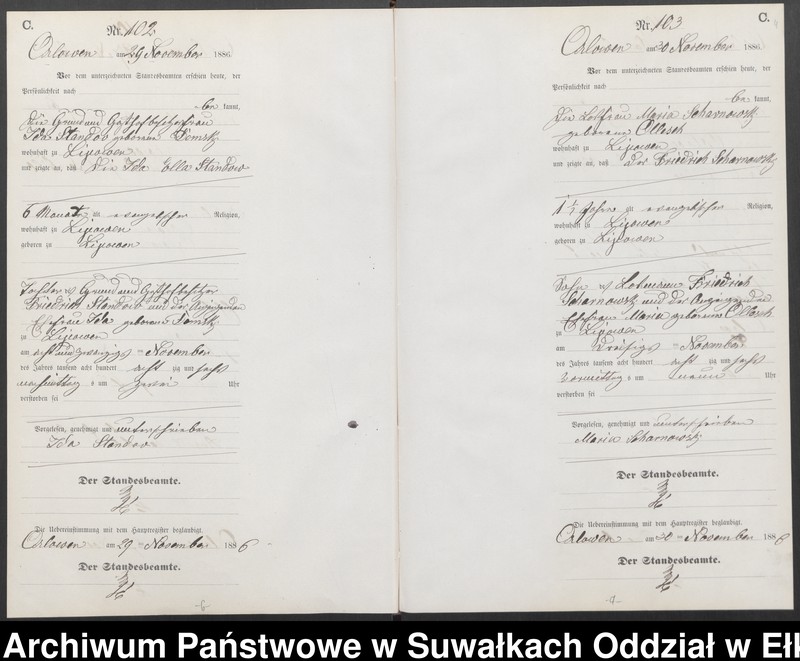 C.
Nr. 102
Orlowen am 29 November 1886
Vor dem unterzeichneten Standesbeamten erschien heute, der
Persönlichkeit nach
be kannt,
die Grund und
Ida Standow geborene
wohnhaft zu Lipowen
und zeigte an, daß die Ida Ella Standow
6 Monate alt evangelischer Religion,
wohnhaft zu Lipowen
geboren zu Lipowen
Tochter des Grund und
Friedrich Standow und der
Ehefrau Ida geborene
zu Lipowen
am acht und zwanzigs = November
des Jahres tausend acht hundert acht zig und sechs
nachmittag s um zwei Uhr
verstorben sei
Vorgelesen, genehmigt und unterschrieben
Ida Standow
Der Standesbeamte.
Die Uebereinstimmung mit dem Hauptregister beglaubigt.
Orlowen am 29 = November 1886
Der Standesbeamte.
Nr. 103
C.
Orlowen am 30 November 1886
Vor dem unterzeichneten Standesbeamten erschien heute, der
Persönlichkeit nach
be kannt,
die Maria Scharnowski
geborene Olbrich
wohnhaft zu Lipowen
und zeigte an, daß der Friedrich Scharnowski
1 1/2 Jahre alt evangelischer Religion,
wohnhaft zu Lipowen
geboren zu Lipowen
Sohn des Friedrich
Scharnowski und der
Ehefrau Maria geborene Olbrich
zu Lipowen
am dreißigs = November
des Jahres tausend acht hundert acht zig und sechs
Vormittag s um neun Uhr
verstorben sei
Vorgelesen, genehmigt und unterschrieben
Maria Scharnowski
Der Standesbeamte.
Die Uebereinstimmung mit dem Hauptregister beglaubigt.
Orlowen am 30 = November 1886
Der Standesbeamte.
Archiwum Państwowe w Suwałkach Oddział w Ełk